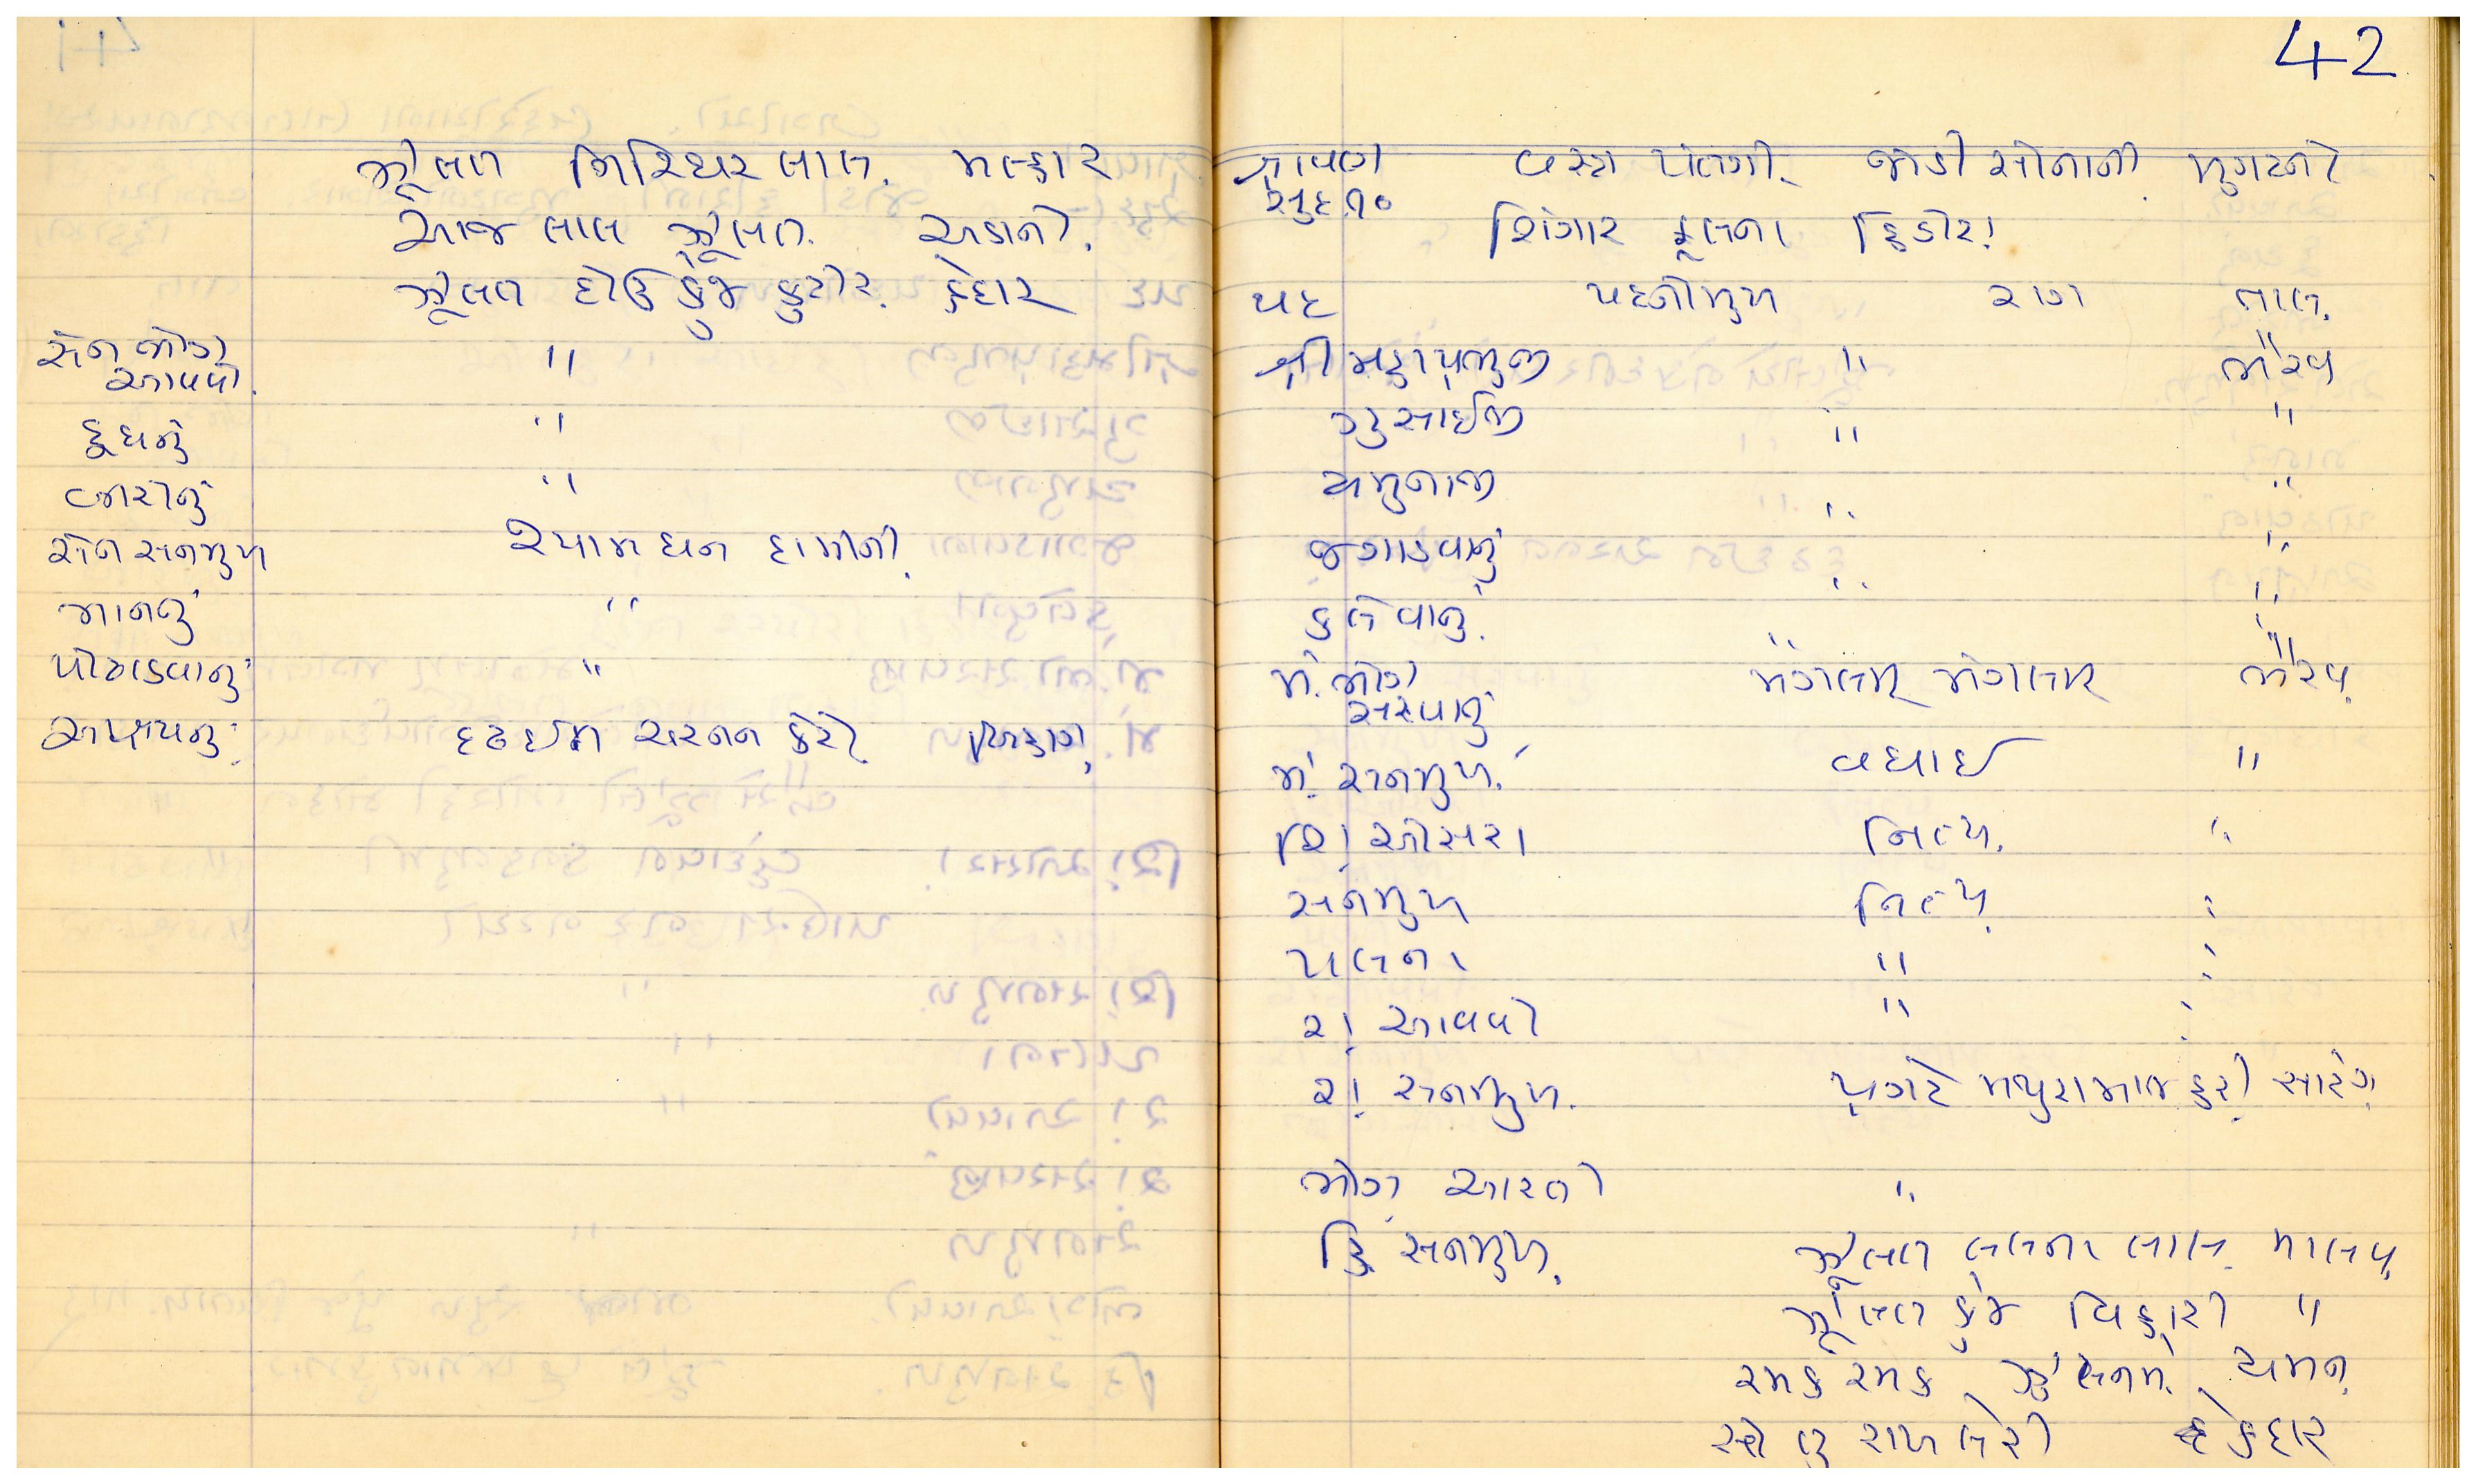 ઝુલત ગિરિધર લાલ. મલ્હાર
આજ લાલ ઝુલત. અડાનો.
ઝુલત દોઉ કુંજ કુટીર. કેદાર
સેન ભોગ આવવો. "
દુધનું "
બારીનું "
સેન સનમુખ શ્યામ ઘન દામીની.
માનનું "
પોઢાડવાનું "
આશ્રયનું દ્રઢ ઈન ચરનન કેરો બિહાગ
42
શ્રાવણ સુદ.૧૦ વસ્ત્ર પતંગી. જોડી સોનાની મુગટનો
શિંગાર ફૂલના હિંડોરા
પદ પદનીમુખ રાગ તાલ.
શ્રી મહાપ્રભુજી " ભૈરવ
ગુસાઈજી " "
યમુનાજી " "
જગાડવાનું " "
કલેવાનું. " "
મં. ભોગ સરવાનું મંગલમ્ મંગલમ્ ભૈરવ
મં. સનમુખ. વધાઈ "
શિં. ઓસરા નિત્ય. "
સનમુખ નિત્ય "
પલના " "
રા. આવવો " "
રા. સનમુખ. પ્રગટે મથુરામાજ હરી સારંગ
ભોગ આરતી "
હિં સનમુખ. ઝુલત લલના લાલ. માલવ
ઝુલત કુંજ વિહારી "
રમક ઝમક યમન
કેદાર